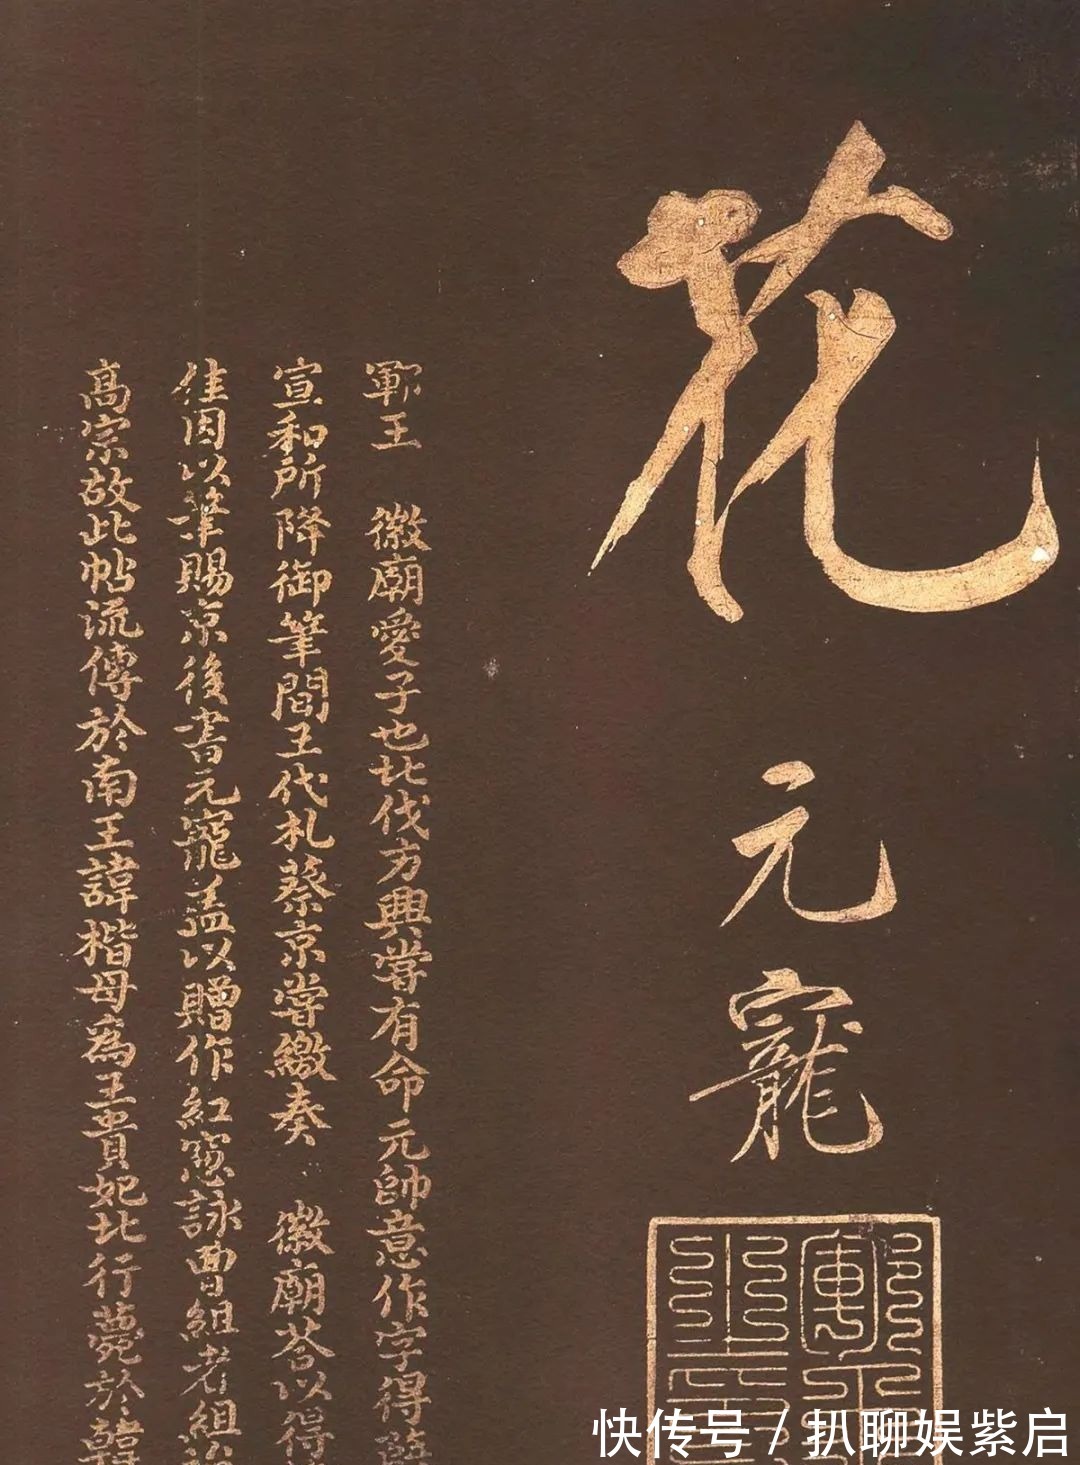 花
元寵
鄆王 徽廟愛子也北伐方興嘗有命元帥意作字得
宣和所降御筆間王代札蔡京嘗繳奏 徽廟荅以得
佳因以筆賜京後書元寵盖以贈作紅窓詠曹組者組
高宗故此帖流傳於南王諱楷母為王貴妃北行薨於韓
快传号 / 扒聊娱紫启